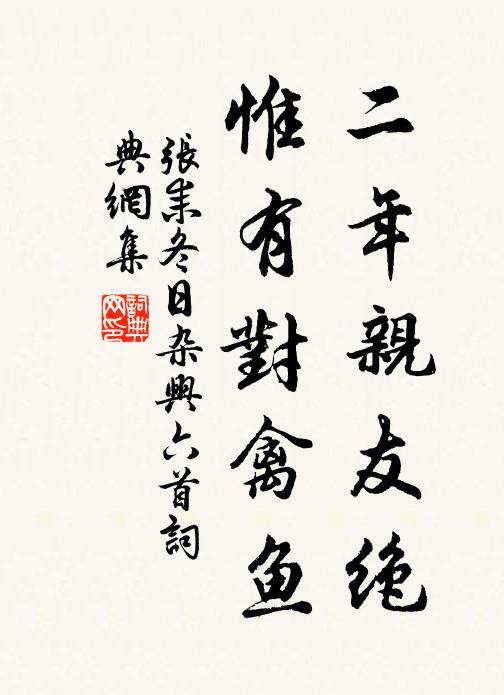 二年親友絶
惟有對禽鱼
張耒冬日杂興六首詞
典網集
詞典网印